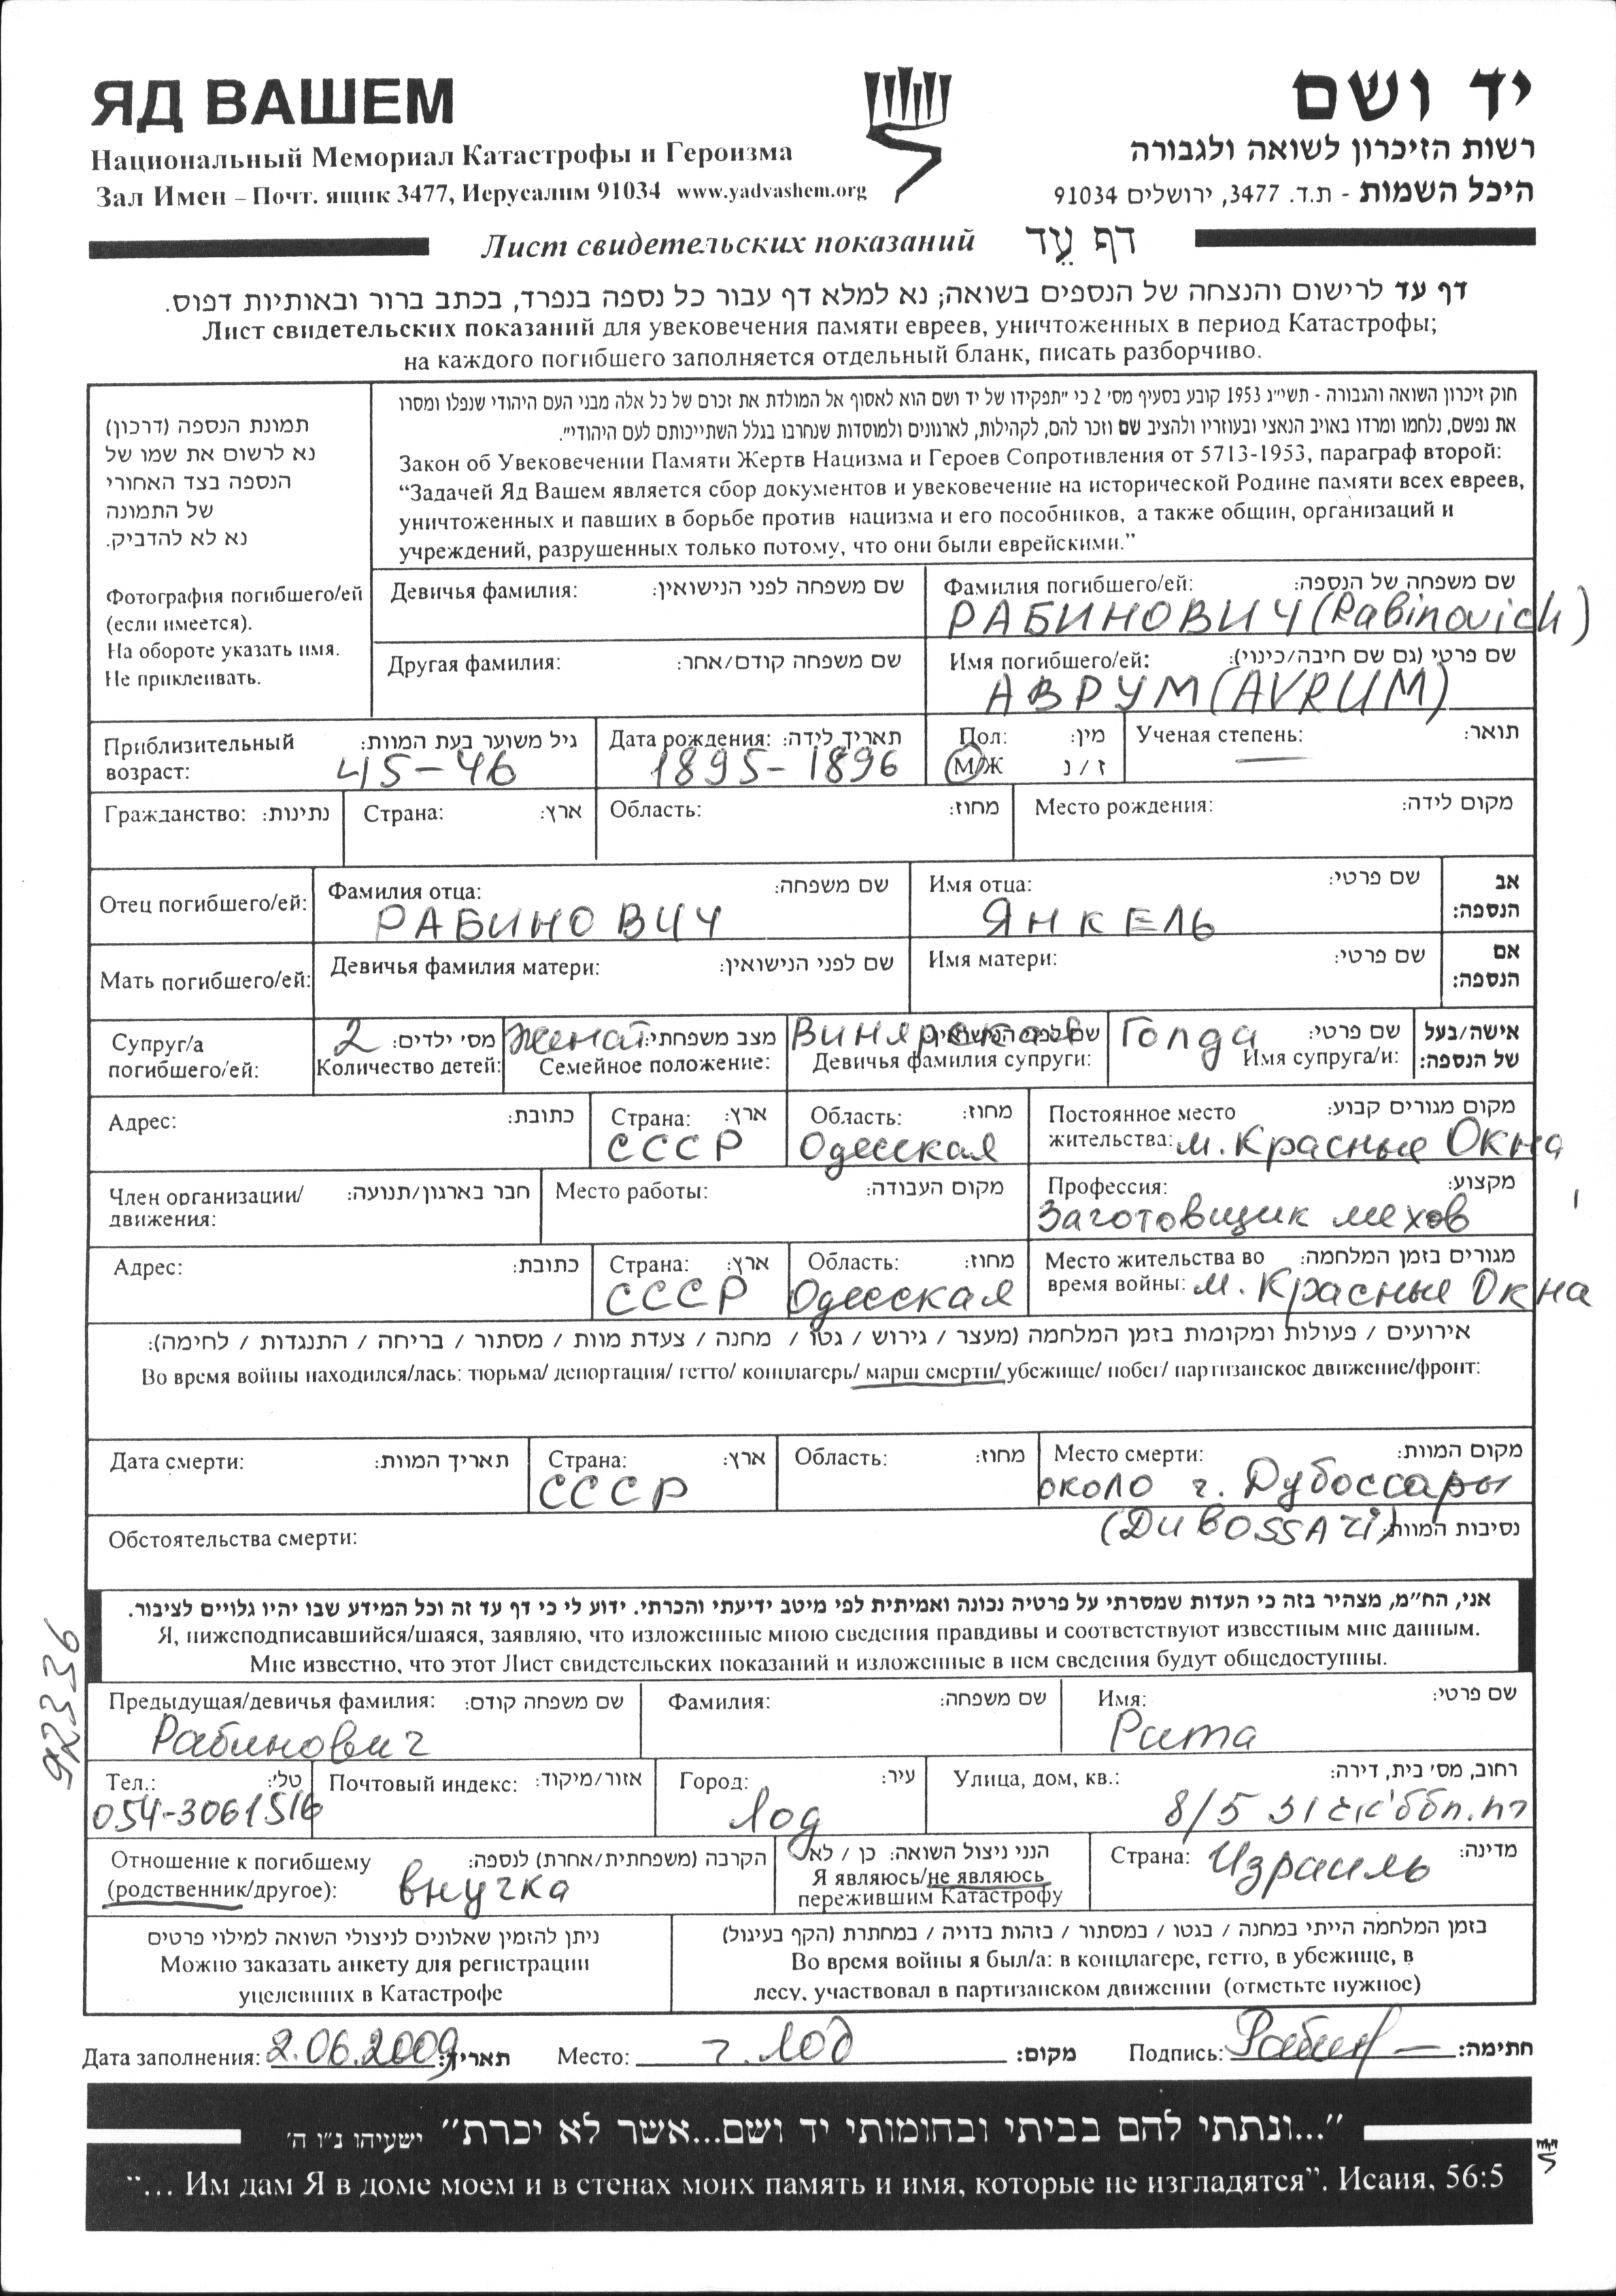 ЯД ВАШЕМ
יד ושם
Национальный Мемориал Катастрофы и Героизма
רשות הזיכרון לשואה ולגבורה
Зал Имен – Почт. ящик 3477, Иерусалим 91034 www.yadvashem.org
היכל השמות - ת.ד. 3477, ירושלים 91034
Лист свидетельских показаний דף עֵד
דף עד לרישום והנצחה של הנספים בשואה; נא למלא דף עבור כל נספה בנפרד, בכתב ברור ובאותיות דפוס.
Лист свидетельских показаний для увековечения памяти евреев, уничтоженных в период Катастрофы;
на каждого погибшего заполняется отдельный бланк, писать разборчиво.
תמונת הנספה (דרכון)
נא לרשום את שמו של
הנספה בצד האחורי
של התמונה
נא לא להדביק.
Фотография погибшего/ей
(если имеется).
На обороте указать имя.
Не приклеивать.
חוק זיכרון השואה והגבורה - תשי״ג 1953 קובע בסעיף מס׳ 2 כי ״תפקידו של יד ושם הוא לאסוף אל המולדת את זכרם של כל אלה מבני העם היהודי שנפלו ומסרו
את נפשם, נלחמו ומרדו באויב הנאצי ובעוזריו ולהציב שם וזכר להם, לקהילות, לארגונים ולמוסדות שנחרבו בגלל השתייכותם לעם היהודי״.
Закон об Увековечении Памяти Жертв Нацизма и Героев Сопротивления от 5713-1953, параграф второй:
“Задачей Яд Вашем является сбор документов и увековечение на исторической Родине памяти всех евреев,
уничтоженных и павших в борьбе против нацизма и его пособников, а также общин, организаций и
учреждений, разрушенных только потому, что они были еврейскими.”
Девичья фамилия: שם משפחה לפני הנישואין:
Фамилия погибшего/ей: שם משפחה של הנספה:
РАБИНОВИЧ (Rabinovich)
Другая фамилия: שם משפחה קודם/אחר:
Имя погибшего/ей: שם פרטי (גם שם חיבה/כינוי):
АВРУМ (AVRUM)
Приблизительный возраст: גיל משוער בעת המוות:
45-46
Дата рождения: תאריך לידה:
1895-1896
Пол: מין:
М/Ж ז / נ
Ученая степень: תואר:
—
Гражданство: נתינות:
Страна: ארץ:
Область: מחוז:
Место рождения: מקום לידה:
Отец погибшего/ей:
Фамилия отца: שם משפחה:
РАБИНОВИЧ
Имя отца: שם פרטי:
ЯНКЕЛЬ
אב הנספה:
Мать погибшего/ей:
Девичья фамилия матери: שם לפני הנישואין:
Имя матери: שם פרטי:
אם הנספה:
Супруг/а погибшего/ей:
2 מסי ילדים:
Количество детей:
Женат מצב משפחתי:
Семейное положение:
שם לפני הנישואין:
Девичья фамилия супруги:
Голда שם פרטי:
Имя супруга/и:
אישה/בעל של הנספה:
Адрес: כתובת:
Страна: ארץ:
СССР
Область: מחוז:
Одесская
Постоянное место מקום מגורים קבוע:
жительства: м. Красные Окна
Член организации/ движения: חבר בארגון/תנועה:
Место работы: מקום העבודה:
Профессия: מקצוע:
Заготовщик мехов
Адрес: כתובת:
Страна: ארץ:
СССР
Область: מחוז:
Одесская
Место жительства во מגורים בזמן המלחמה:
время войны: м. Красные Окна
אירועים / פעולות ומקומות בזמן המלחמה (מעצר / גירוש / גטו / מחנה / צעדת מוות / מסתור / בריחה / התנגדות / לחימה):
Во время войны находился/лась: тюрьма/ депортация/ гетто/ концлагерь/ марш смерти/ убежище/ побег/ партизанское движение/фронт:
Дата смерти: תאריך המוות:
Страна: ארץ:
СССР
Область: מחוז:
Место смерти: מקום המוות:
около г. Дубоссары
(DUBOSSARI)
Обстоятельства смерти: נסיבות המוות:
אני, הח״מ, מצהיר בזה כי העדות שמסרתי על פרטיה נכונה ואמיתית לפי מיטב ידיעתי והכרתי. ידוע לי כי דף עד זה וכל המידע שבו יהיו גלויים לציבור.
Я, нижеподписавшийся/шаяся, заявляю, что изложенные мною сведения правдивы и соответствуют известным мне данным.
Мне известно, что этот Лист свидетельских показаний и изложенные в нем сведения будут общедоступны.
92336
Предыдущая/девичья фамилия: שם משפחה קודם:
Рабинович
Фамилия: שם משפחה:
Имя: שם פרטי:
Рита
Тел.: טלי:
054-3061516
Почтовый индекс: אזור/מיקוד:
Город: עיר:
Лод
Улица, дом, кв.: רחוב, מס׳ בית, דירה:
8/5
Отношение к погибшему הקרבה (משפחתית/אחרת) לנספה:
(родственник/другое): внучка
הנני ניצול השואה: כן / לא
Я являюсь/не являюсь
пережившим Катастрофу
Страна: מדינה:
Израиль
ניתן להזמין שאלונים לניצולי השואה למילוי פרטים
Можно заказать анкету для регистрации
уцелевших в Катастрофе
בזמן המלחמה הייתי במחנה / בגטו / במסתור / בזהות בדויה / במחתרת (הקף בעיגול)
Во время войны я был/а: в концлагере, гетто, в убежище, в
лесу, участвовал в партизанском движении (отметьте нужное)
Дата заполнения: 2.06.2009 תאריך: Место: г. Лод מקום: Подпись: חתימה:
״...ונתתי להם בביתי ובחומותי יד ושם...אשר לא יכרת״ ישעיהו נ״ו ה׳
“... Им дам Я в доме моем и в стенах моих память и имя, которые не изгладятся”. Исаия, 56:5